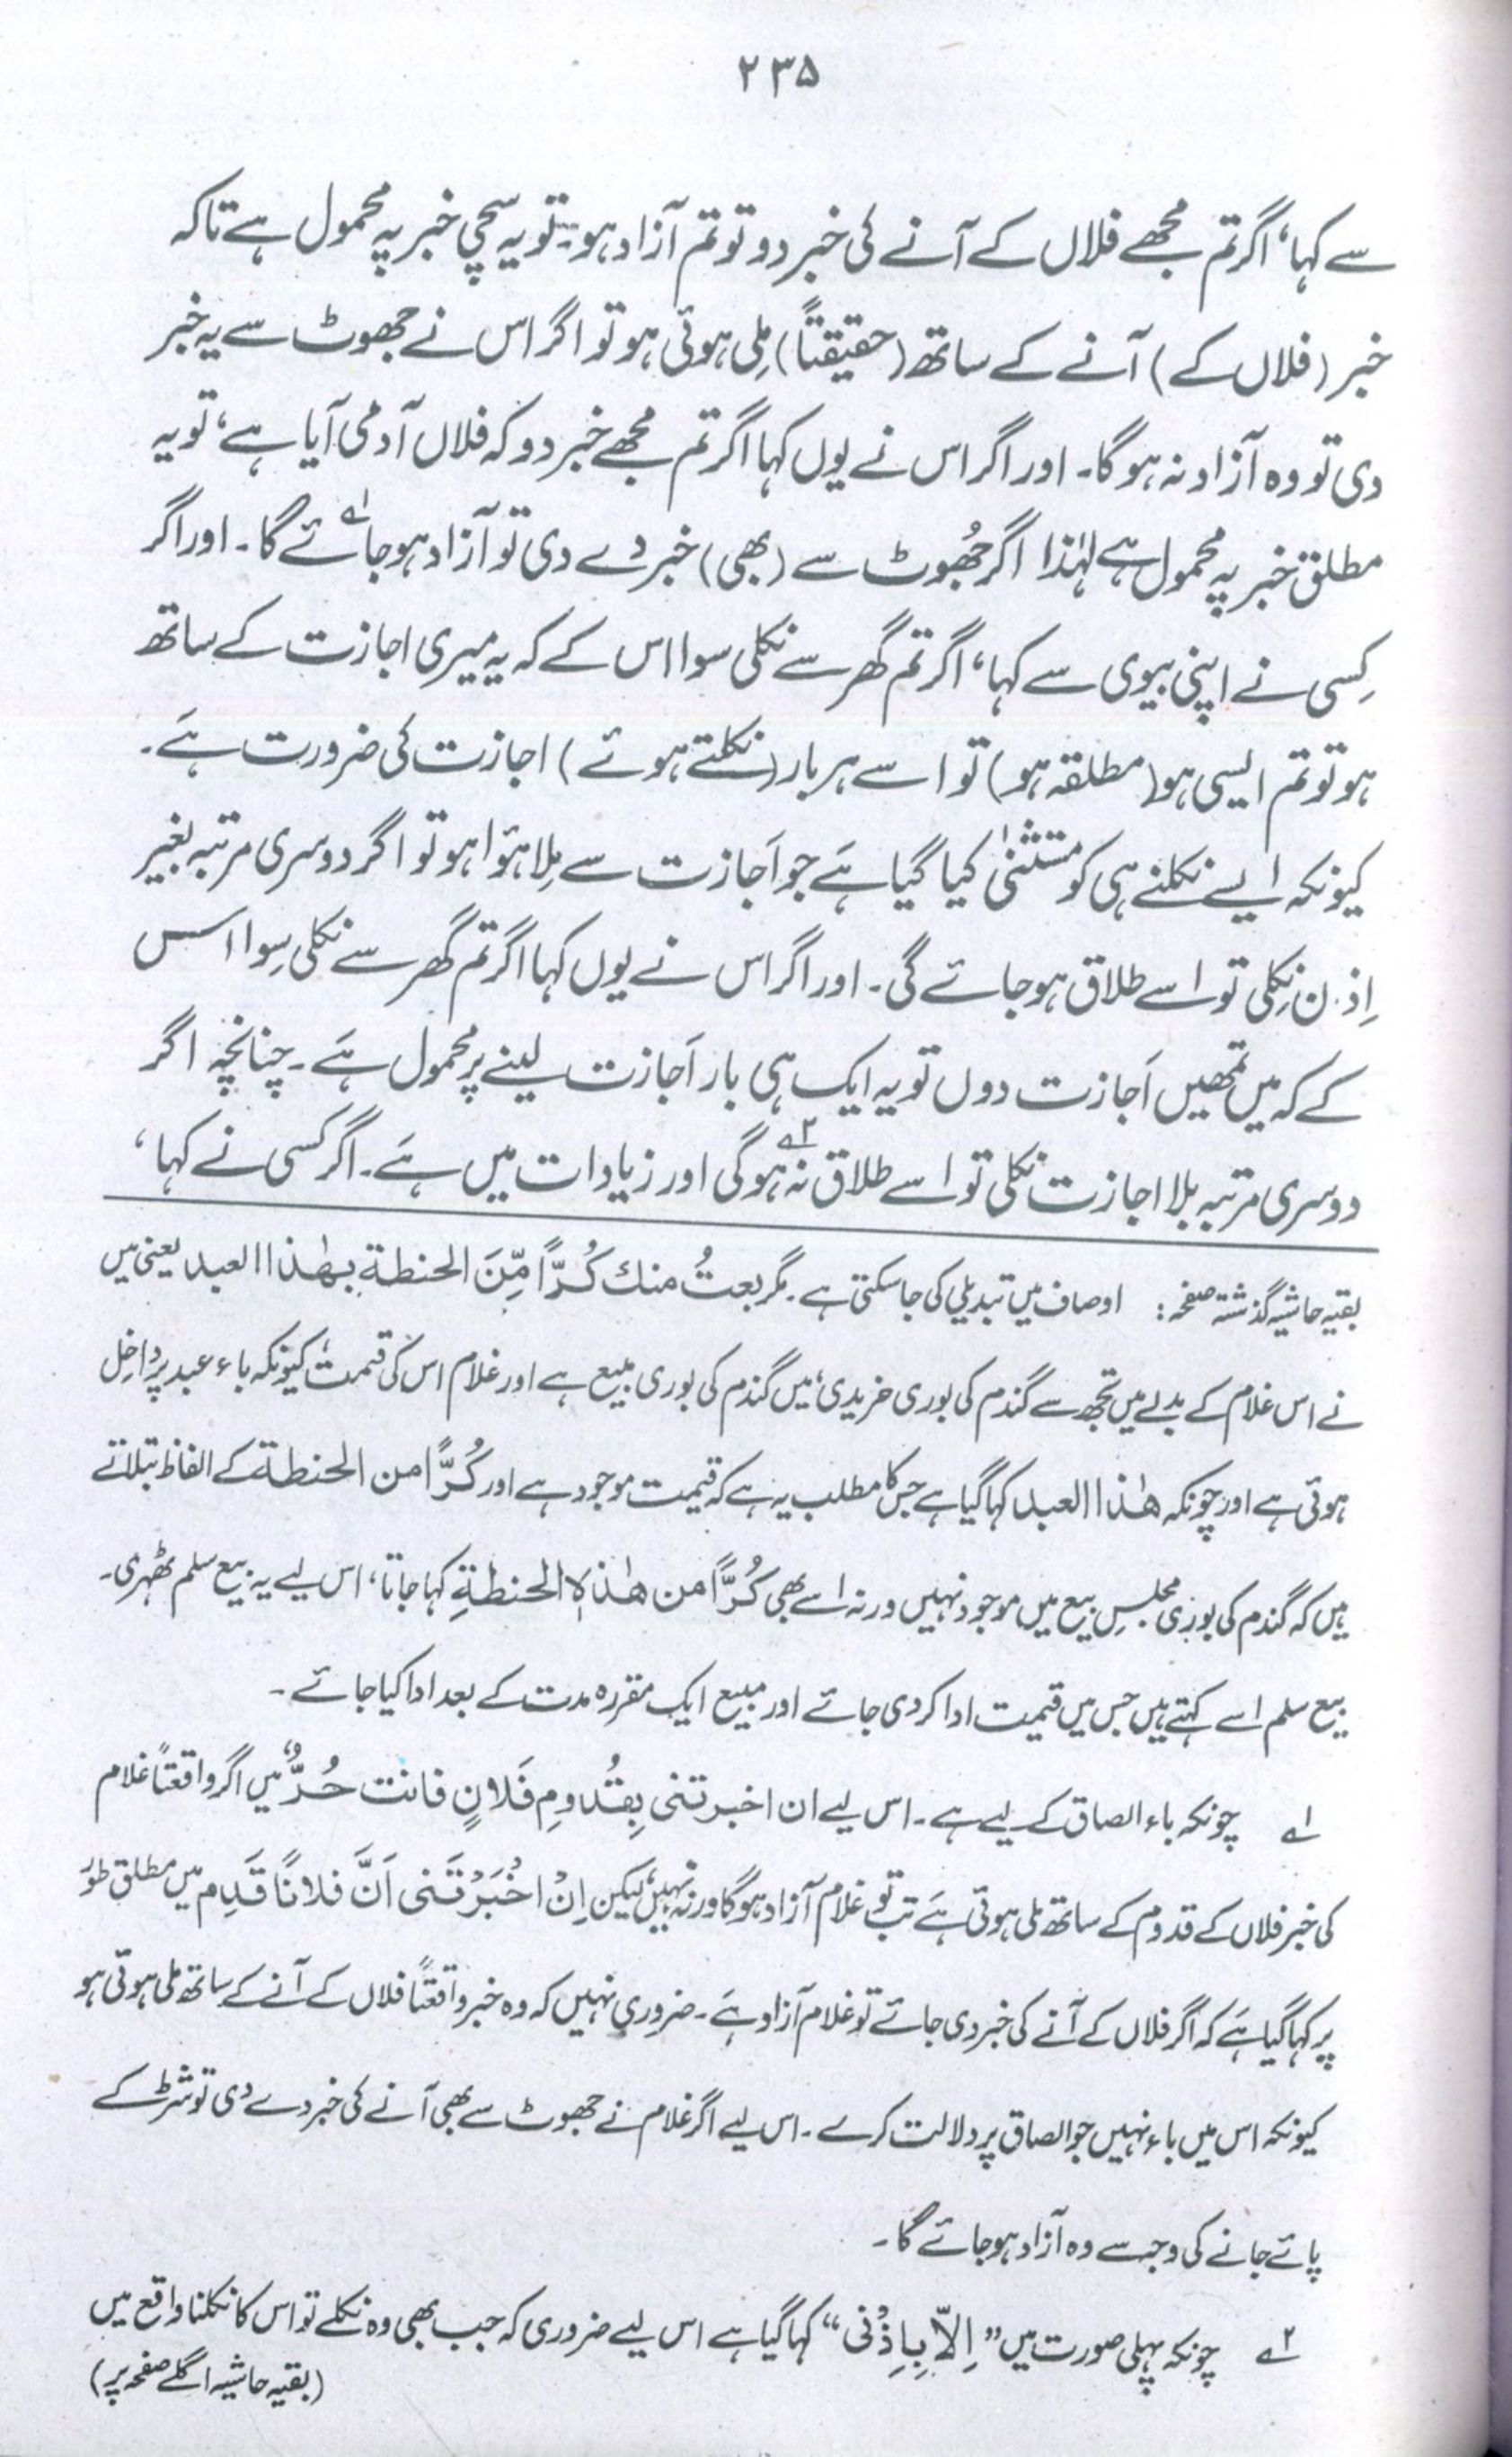 ۲۳۵
سے کہا، اگر تم مجھے فلاں کے آنے کی خبر دو تو تم آزاد ہو۔ تو یہ سچی خبر پہ محمول ہے تاکہ
خبر (فلاں کے) آنے کے ساتھ (حقیقتاً) مِلی ہوئی ہو تو اگر اس نے جھوٹ سے یہ خبر
دی تو وہ آزاد نہ ہوگا۔ اور اگر اس نے یوں کہا اگر تم مجھے خبر دو کہ فلاں آدمی آیا ہے، تو یہ
مطلق خبر پہ محمول ہے لہٰذا اگر جھُوٹ سے (بھی) خبر دے دی تو آزاد ہو جائے گا۔ ؂۱ اور اگر
کِسی نے اپنی بیوی سے کہا، اگر تم گھر سے نکلی سوا اس کے کہ یہ میری اجازت کے ساتھ
ہو تو تم ایسی ہو (مطلقہ ہو) تو اسے ہر بار (نکلتے ہوئے) اجازت کی ضرورت ہَے۔
کیونکہ ایسے نکلنے ہی کو مستثنیٰ کیا گیا ہَے جو اَجازت سے مِلا ہؤا ہو تو اگر دوسری مرتبہ بغیر
اِذن نِکلی تو اسے طلاق ہو جائے گی۔ اور اگر اس نے یوں کہا اگر تم گھر سے نکلی سِوا اس
کے کہ میں تمھیں اَجازت دوں تو یہ ایک ہی بار اَجازت لینے پر محمول ہَے۔ چنانچہ اگر
دوسری مرتبہ بلا اجازت نکلی تو اسے طلاق نہ ہوگی ؂۲ اور زیادات میں ہَے۔ اگر کسی نے کہا،
بقیہ حاشیہ گذشتہ صفحہ: اوصاف میں تبدیلی کی جا سکتی ہے۔ مگر بعتُ منك كُرًّا مِّنَ الحنطة بهٰذا العبد یعنی میں
نے اس غلام کے بدلے میں تجھ سے گندم کی بوری خریدی، میں گندم کی بوری مبیع ہے اور غلام اس کی قیمت، کیونکہ باء عبد پر داخِل
ہوئی ہے اور چونکہ هٰذا العبد کہا گیا ہے جس کا مطلب یہ ہے کہ قیمت موجود ہے اور كُرًّا من الحنطة کے الفاظ بتلاتے
ہیں کہ گندم کی بوری مجلسِ بیع میں موجود نہیں ورنہ اسے بھی كُرًّا من هٰذهِ الحنطةِ کہا جاتا، اس لیے یہ بیع سلم ٹھہری۔
بیع سلم اسے کہتے ہیں جس میں قیمت ادا کر دی جائے اور مبیع ایک مقررہ مدت کے بعد ادا کیا جائے۔
؂۱ چونکہ باء الصاق کے لیے ہے۔ اس لیے ان اخبرتنی بِقُدومِ فَلانٍ فانت حُرٌّ، میں اگر واقعتاً غلام
کی خبر فلاں کے قدوم کے ساتھ ملی ہوئی ہَے تب تو غلام آزاد ہوگا ورنہ نہیں، لیکن اِنْ اخْبَرْتَنی اَنَّ فلانًا قَدِم میں مطلق طور
پر کہا گیا ہَے کہ اگر فلاں کے آنے کی خبر دی جائے تو غلام آزاد ہَے۔ ضروری نہیں کہ وہ خبر واقعتًا فلاں کے آنے کے ساتھ ملی ہوئی ہو
کیونکہ اس میں باء نہیں جو الصاق پر دلالت کرے۔ اس لیے اگر غلام نے جھوٹ سے بھی آنے کی خبر دے دی تو شرط کے
پائے جانے کی وجہ سے وہ آزاد ہو جائے گا۔
؂۲ چونکہ پہلی صورت میں "اِلاّ بِاِذْنی" کہا گیا ہے اس لیے ضروری کہ جب بھی وہ نکلے تو اس کا نکلنا واقع میں
(بقیہ حاشیہ اگلے صفحہ پر)